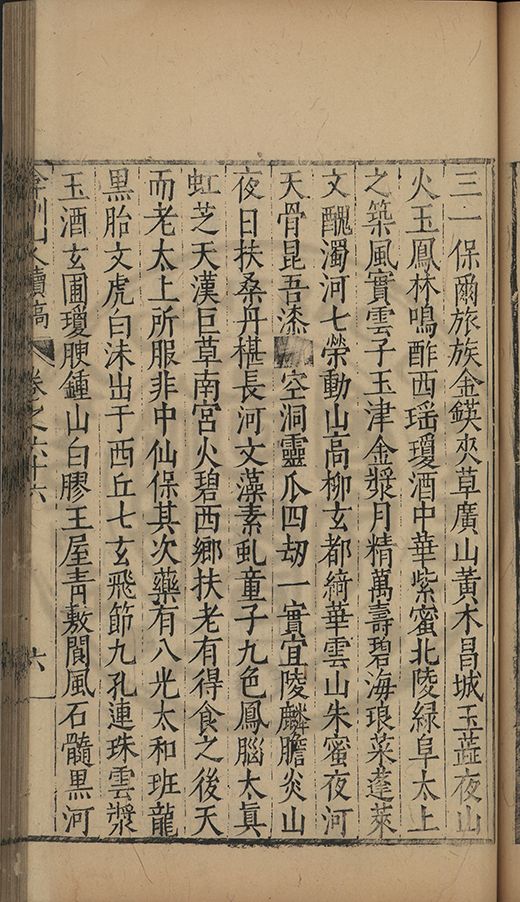 三一保爾旅族金鍈夾草廣山黃木昌城玉蕋夜山
火玉鳳林鳴酢西瑶瓊酒中華紫蜜北陵緑阜太上
之築風實雲子玉津金漿月精萬壽碧海琅菜蓬萊
文醜濁河七榮動山高柳玄都綺華雲山朱蜜夜河
天骨昆吾漆空洞靈瓜四刼一實宜陵麟膽炎山
夜日扶桑丹椹長河文藻素虬童子九色鳳腦太真
虹芝天漢巨草南宮火碧西鄉扶老有得食之後天
而老太上所服非中仙保其次藥有八光太和班龍
黑胎文虎白沬出于西丘七玄飛節九孔連珠雲漿
玉酒玄圃瓊腴鍾山白膠王屋青敷閬風石髓黒河
山人續稿 卷之六十六 六